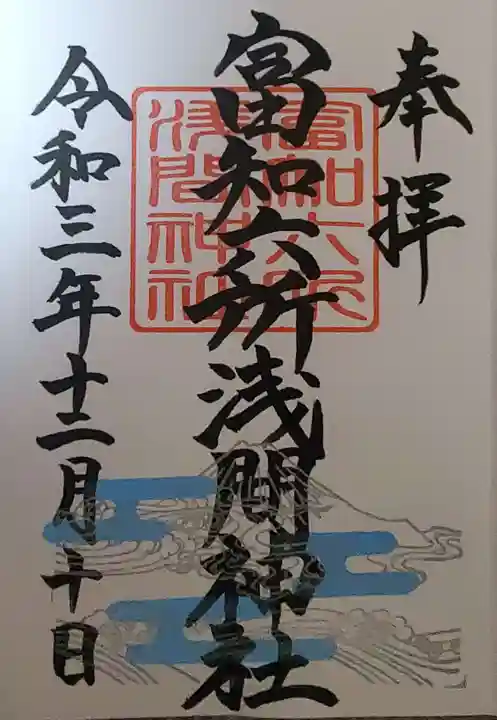 奉拝
富知六所浅間神社
富知六所
浅間神社
令和三年十二月十日